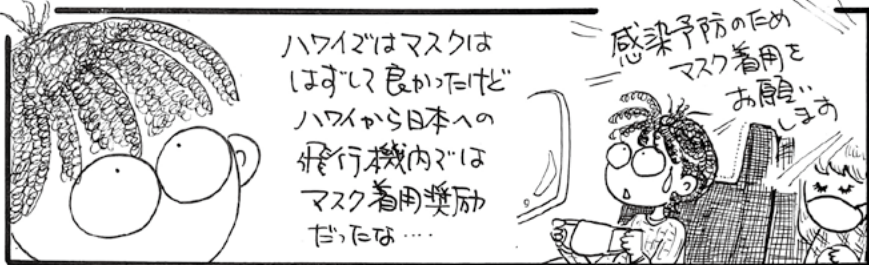 ハワイではマスクは
はずして良かったけど
ハワイから日本への
飛行機内では
マスク着用奨励
だったな‥‥
感染予防のため
マスク着用を
お願い
します